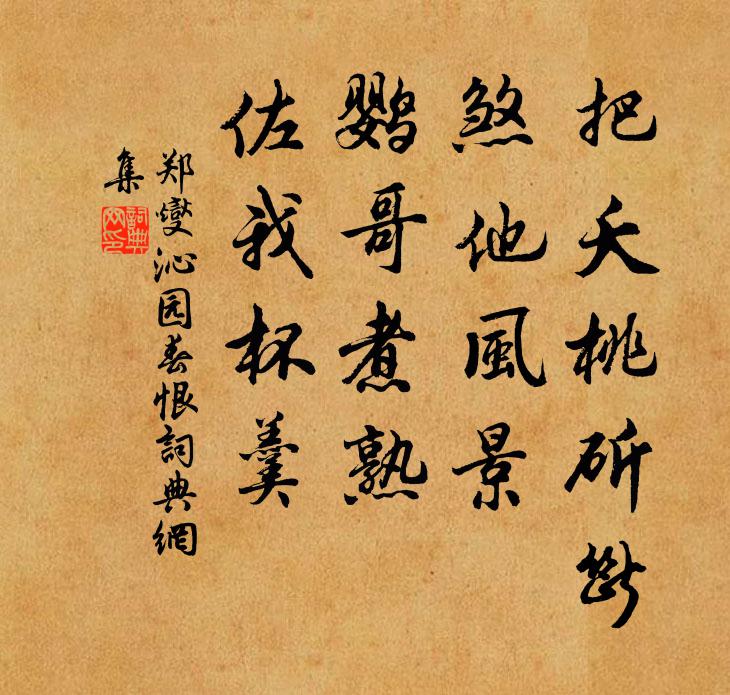 把夭桃斫斷
煞他風景
鹦哥煮熟
佐我杯羹
郑燮沁园春恨詞典網
集
詞典
网印